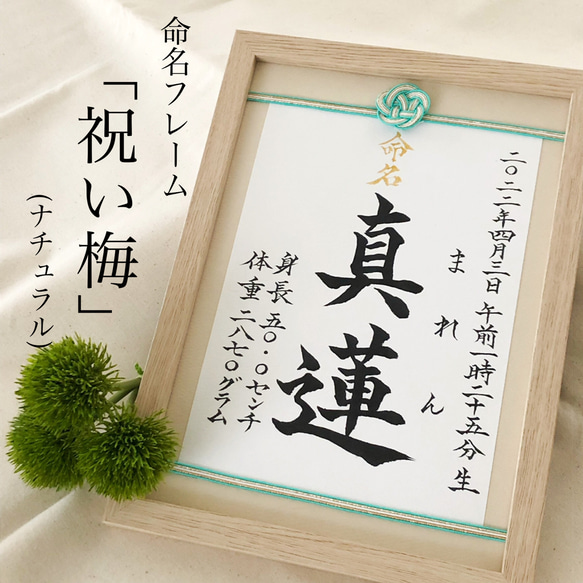 命名フレーム
「祝い梅」
(ナチュラル)
命名
二〇二二年四月三日 午前一時二十五分生
まれん
真蓮
身長 五〇.〇センチ
体重 二八七〇グラム